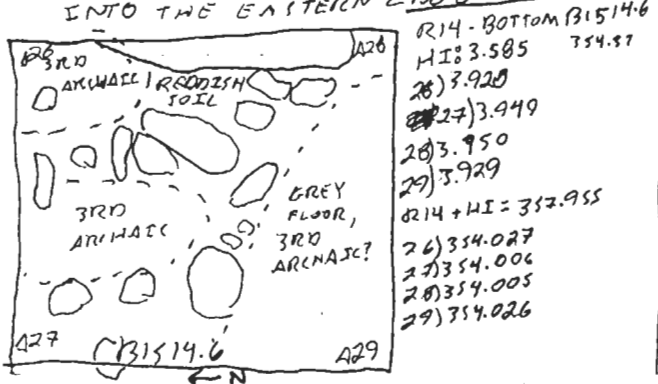 INTO THE EASTERN
A26
3RD
ARCHAIC
REDDISH
SOIL
A28
3RD
ARCHAIC
GREY
FLOOR,
3RD
ARCHAIC?
A27
B1514.6
A29
← N
R14 - BOTTOM B1514.6
354.37
HI: 3.585
26) 3.928
27) 3.949
28) 3.950
29) 3.929
R14 + HI = 357.955
26) 354.027
27) 354.006
28) 354.005
29) 354.026